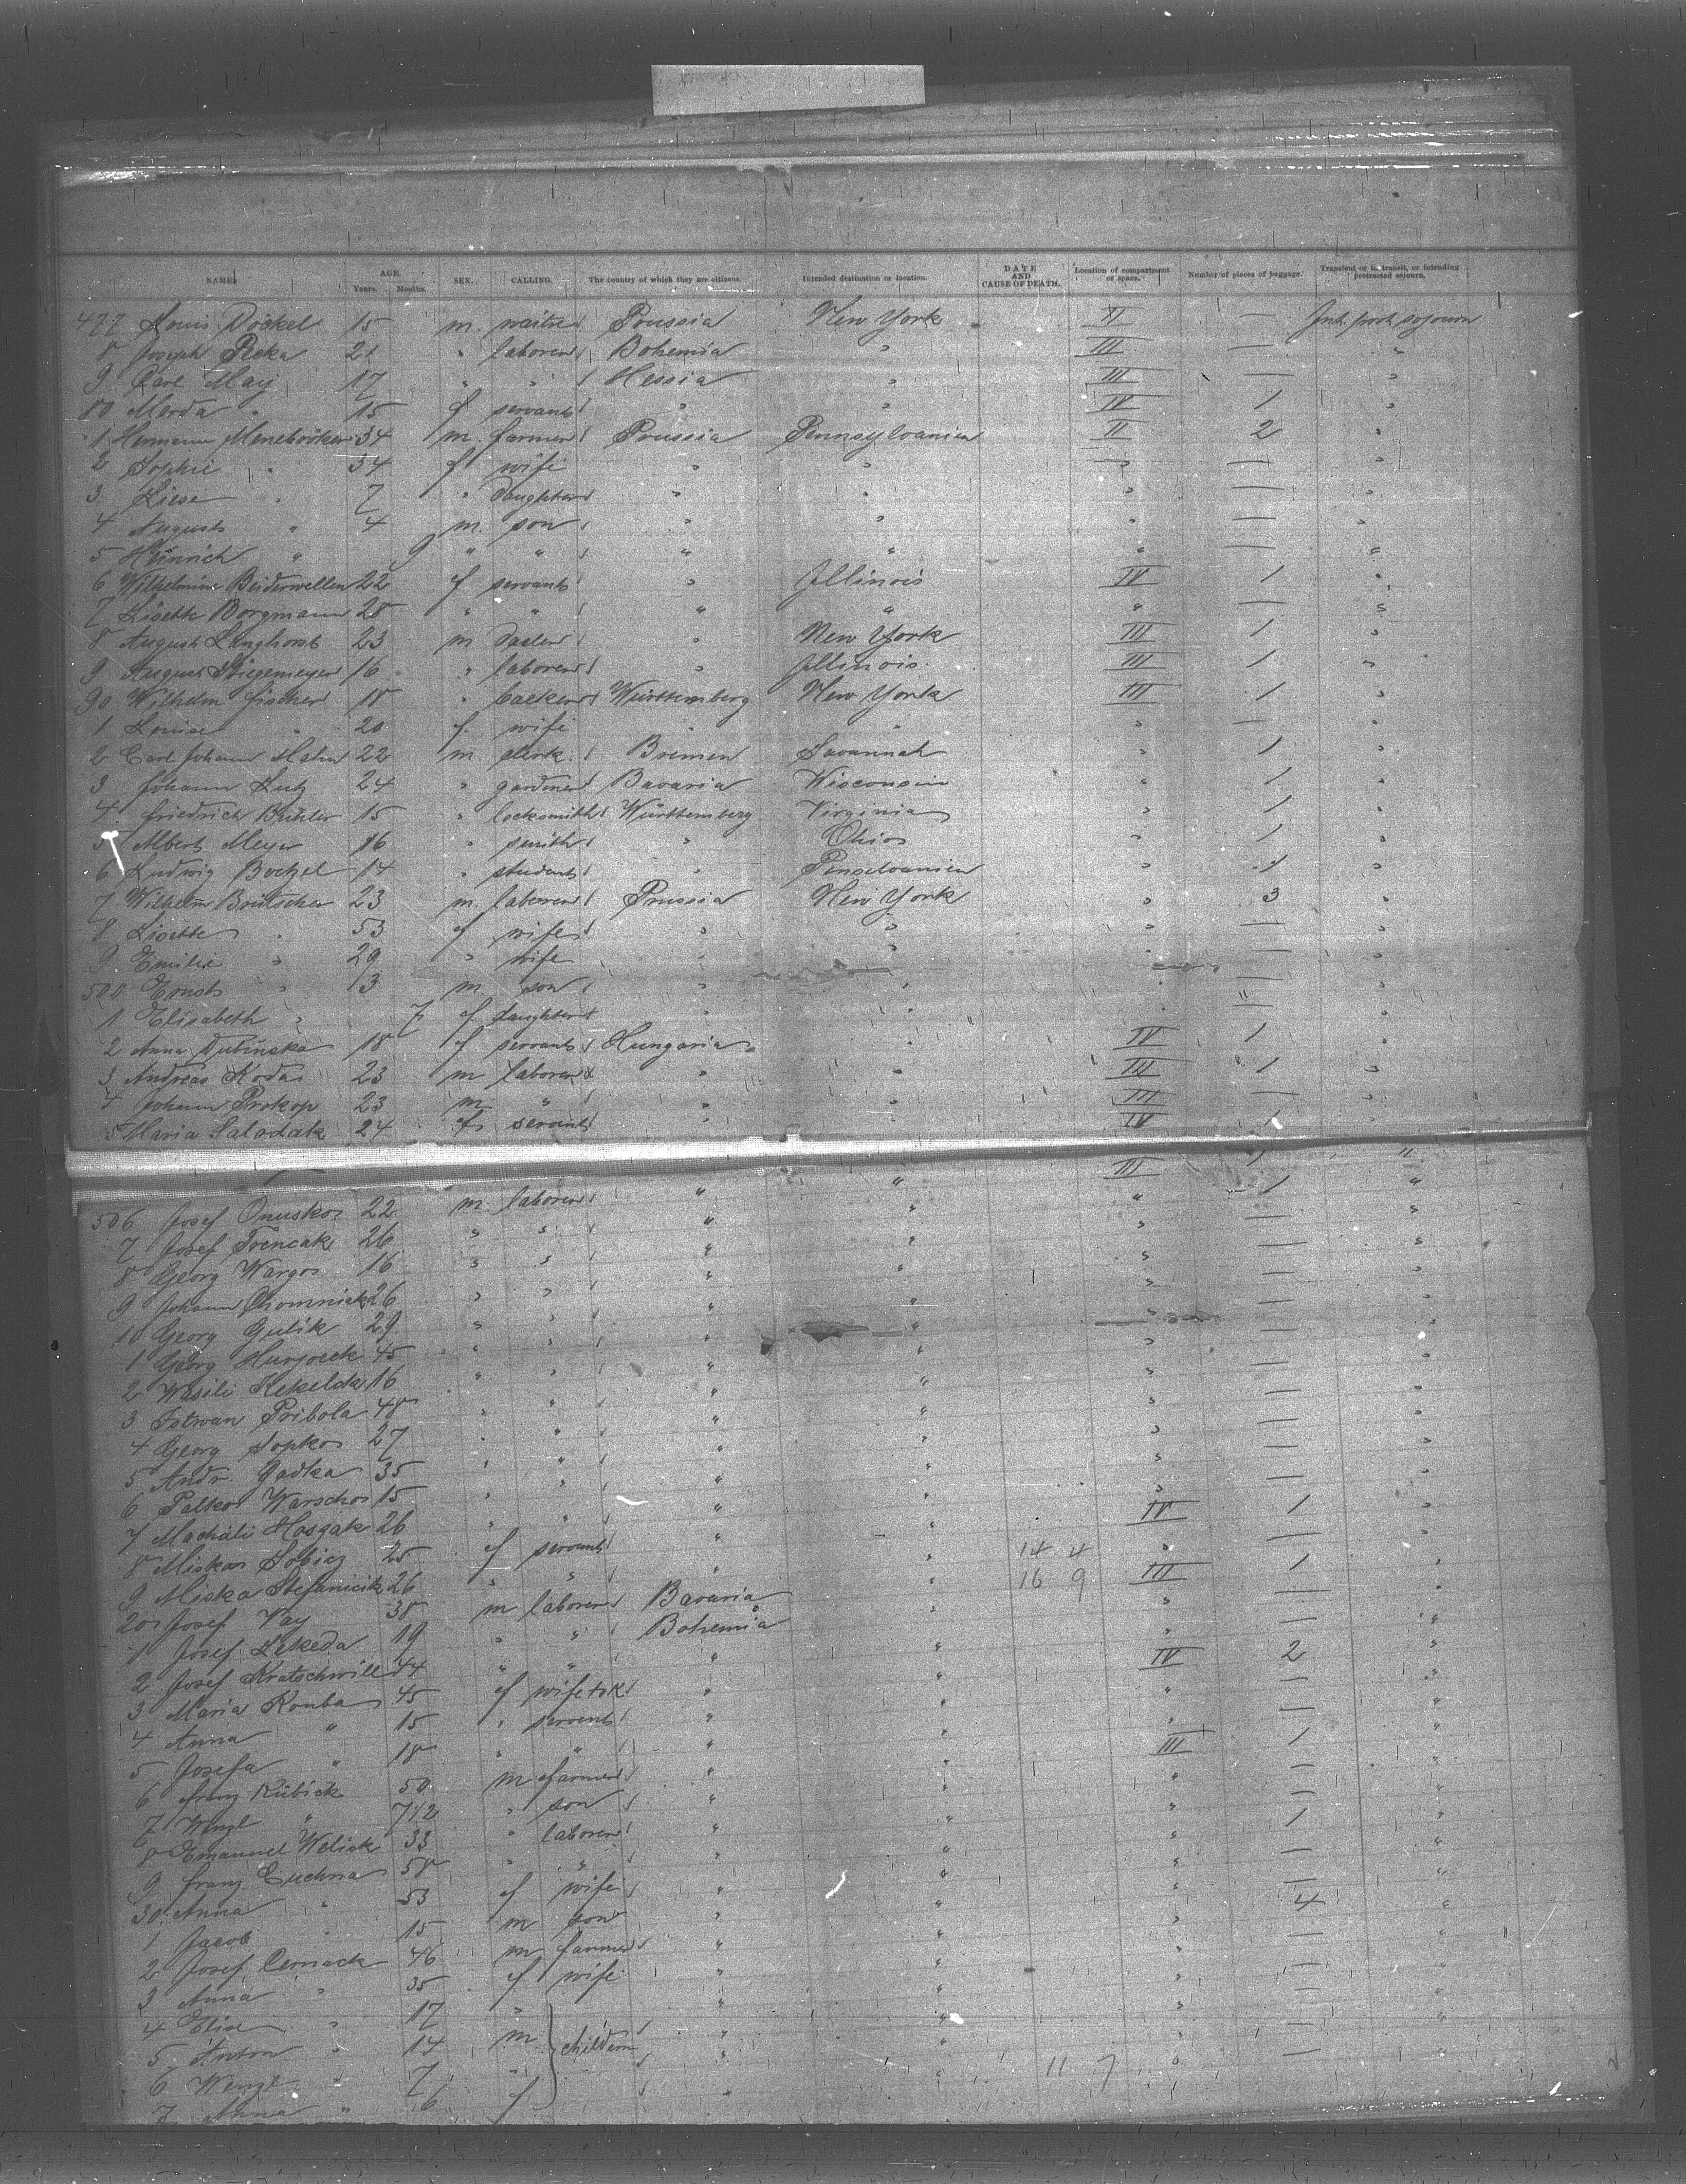 NAMES AGE. Years. Months. SEX. CALLING. The country of which they are citizens. Intended destination or location. DATE AND CAUSE OF DEATH. Location of compartment or space. Number of pieces of baggage. Transient or in transit, or intending protracted sojourn.
477 Louis Döckel 15 m. waiter Prussia New York II — Int. prot. sojourn
8 Joseph Pecka 21 " laborer Bohemia " III — "
9 Carl May 17 " " Hessia " III — "
80 " 15 f servant " " IV 1 "
1 Hermann 34 m. farmer Prussia Pennsylvanien II 2 "
2 Sophie " 34 f wife " " " — "
3 Liese " 7 " daughter " " " — "
4 August " 4 m. son " " " — "
5 Heinrich " 9 " " " " " — "
6 Wilhelmine Beiderwellen 22 f servant " Illinois IV 1 "
7 Lisette Borgmann 28 " " " " " — "
8 August Langhorst 23 m " New York III 1 "
9 August Stiegemeyer 16 " laborer " Illinois III 1 "
90 Wilhelm Fischer 18 " baeker Württemberg New York III 1 "
1 Louise " 20 f. wife " " " — "
2 Carl Johann Hahn 22 m clerk Bremen Savannah " 1 "
3 Johann Lutz 24 " gardener Bavaria Wisconsin " 1 "
4 Friedrich Bühler 15 " locksmith Württemberg Virginia " 1 "
5 Albert Meyer 16 " smith " Ohio " 1 "
6 Ludwig 14 " student " Penselvanien " 1 "
7 Wilhelm Brütscher 23 m. laborer Prussia New York " 3 "
8 Lisette " 53 f wife " " " — "
9 Emilie " 29 " wife " " " — "
500 Ernst " 3 m son " " " — "
1 Elisabeth " 7 f daughter " " " — "
2 Anna Dubinska 18 f servant Hungaria " IV 1 "
3 Andreas Kodas 23 m laborer " " III 1 "
4 Johann Prokop 23 m " " " III — "
5 Maria Saladak 24 f servant " " IV 1 "
506 Josef Onuskos 22 m laborer " " III 1 "
7 Josef Trencak 26 " " " " " — "
8 Georg Wargos 16 " " " " " — "
9 Johann Chomniak 26 " " " " " — "
10 Georg Gulik 29 " " " " " — "
1 Georg 45 " " " " " — "
2 Wasili 16 " " " " " — "
3 Istwan Pribola 48 " " " " " — "
4 Georg Sopkos 27 " " " " " — "
5 Andr. Gadka 35 " " " " " — "
6 Palkos Warschos 15 " " " " " — "
7 26 " " " " " — "
8 Miskas 25 f servant " " 14 4 IV 1 "
9 Miska Stefanicik 26 " " " " 16 9 " — "
20 Josef Vay 38 m laborer Bavaria " III 1 "
1 Josef Lekeda 19 " " Bohemia " " — "
2 Josef Kratschwill 44 " " " " " — "
3 Maria Kouba 45 f wife " " IV 2 "
4 Anna " 15 " servant " " " — "
5 Josefa " 18 " " " " " — "
6 Franz Kubick 50 m farmer " " III 1 "
7 Wenzl " 7 1/2 " son " " " — "
8 Emanuel Welick 33 " laborer " " " 1 "
9 Franz Cuchna 58 " " " " " — "
30 Anna " 53 f wife " " " — "
1 Jacob " 15 m son " " " — "
2 Josef Cernack 46 m farmer " " " 4 "
3 Anna " 35 f wife " " " — "
4 Elise " 17 " " " " — "
5 Anton " 14 m children " " " — "
6 Wenzl " 7 " " " " — "
7 Anna " 6 f " 11 7